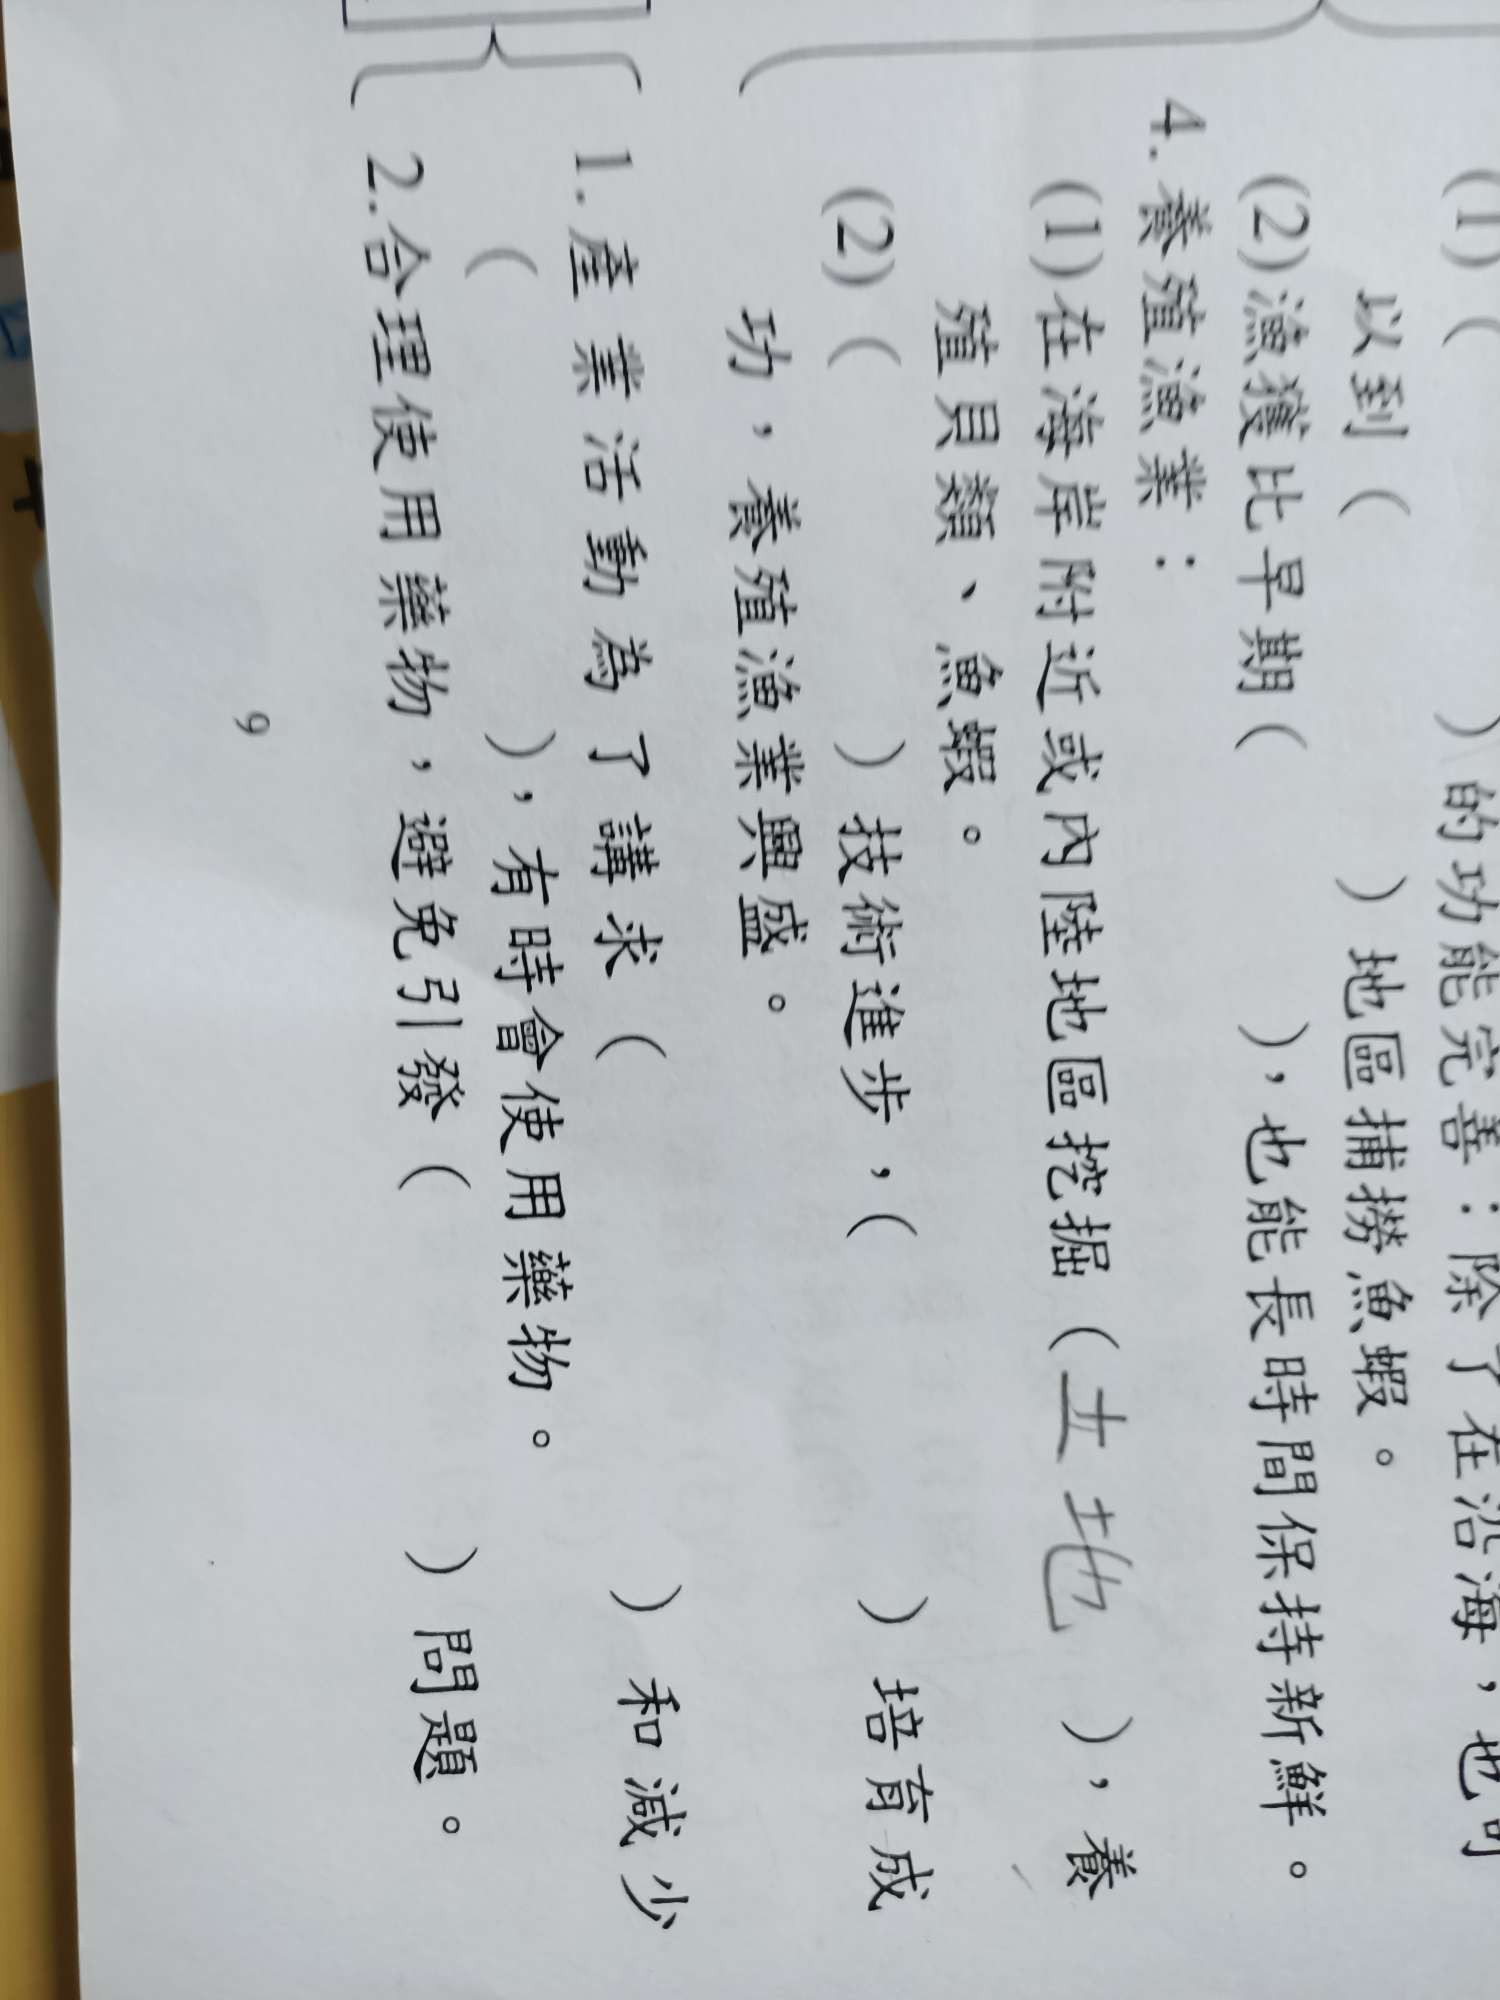 (1)(　　　)的功能完善：除了在沿海，也可
以到(　　　)地區捕撈魚蝦。
(2)漁獲比早期(　　　)，也能長時間保持新鮮。
4.養殖漁業：
(1)在海岸附近或內陸地區挖掘(土地)，養
殖貝類、魚蝦。
(2)(　　　)技術進步，(　　　)培育成
功，養殖漁業興盛。
1.產業活動為了講求(　　　)和減少
(　　　)，有時會使用藥物。
2.合理使用藥物，避免引發(　　　)問題。
9